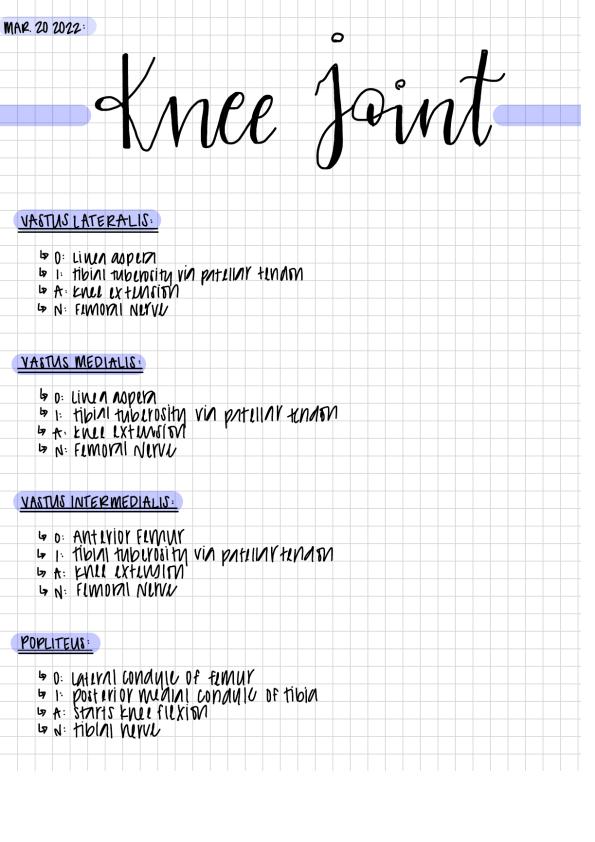 MAR. 20 2022:
Knee Joint
VASTUS LATERALIS:
↳ O: Linea aspera
↳ I: tibial tuberosity via patellar tendon
↳ A: knee extension
↳ N: Femoral Nerve
VASTUS MEDIALIS:
↳ O: Linea aspera
↳ I: tibial tuberosity via patellar tendon
↳ A: knee extension
↳ N: Femoral Nerve
VASTUS INTERMEDIALIS:
↳ O: Anterior Femur
↳ I: tibial tuberosity via patellar tendon
↳ A: knee extension
↳ N: Femoral Nerve
POPLITEUS:
↳ O: Lateral condyle of femur
↳ I: posterior medial condyle of tibia
↳ A: starts knee flexion
↳ N: tibial nerve